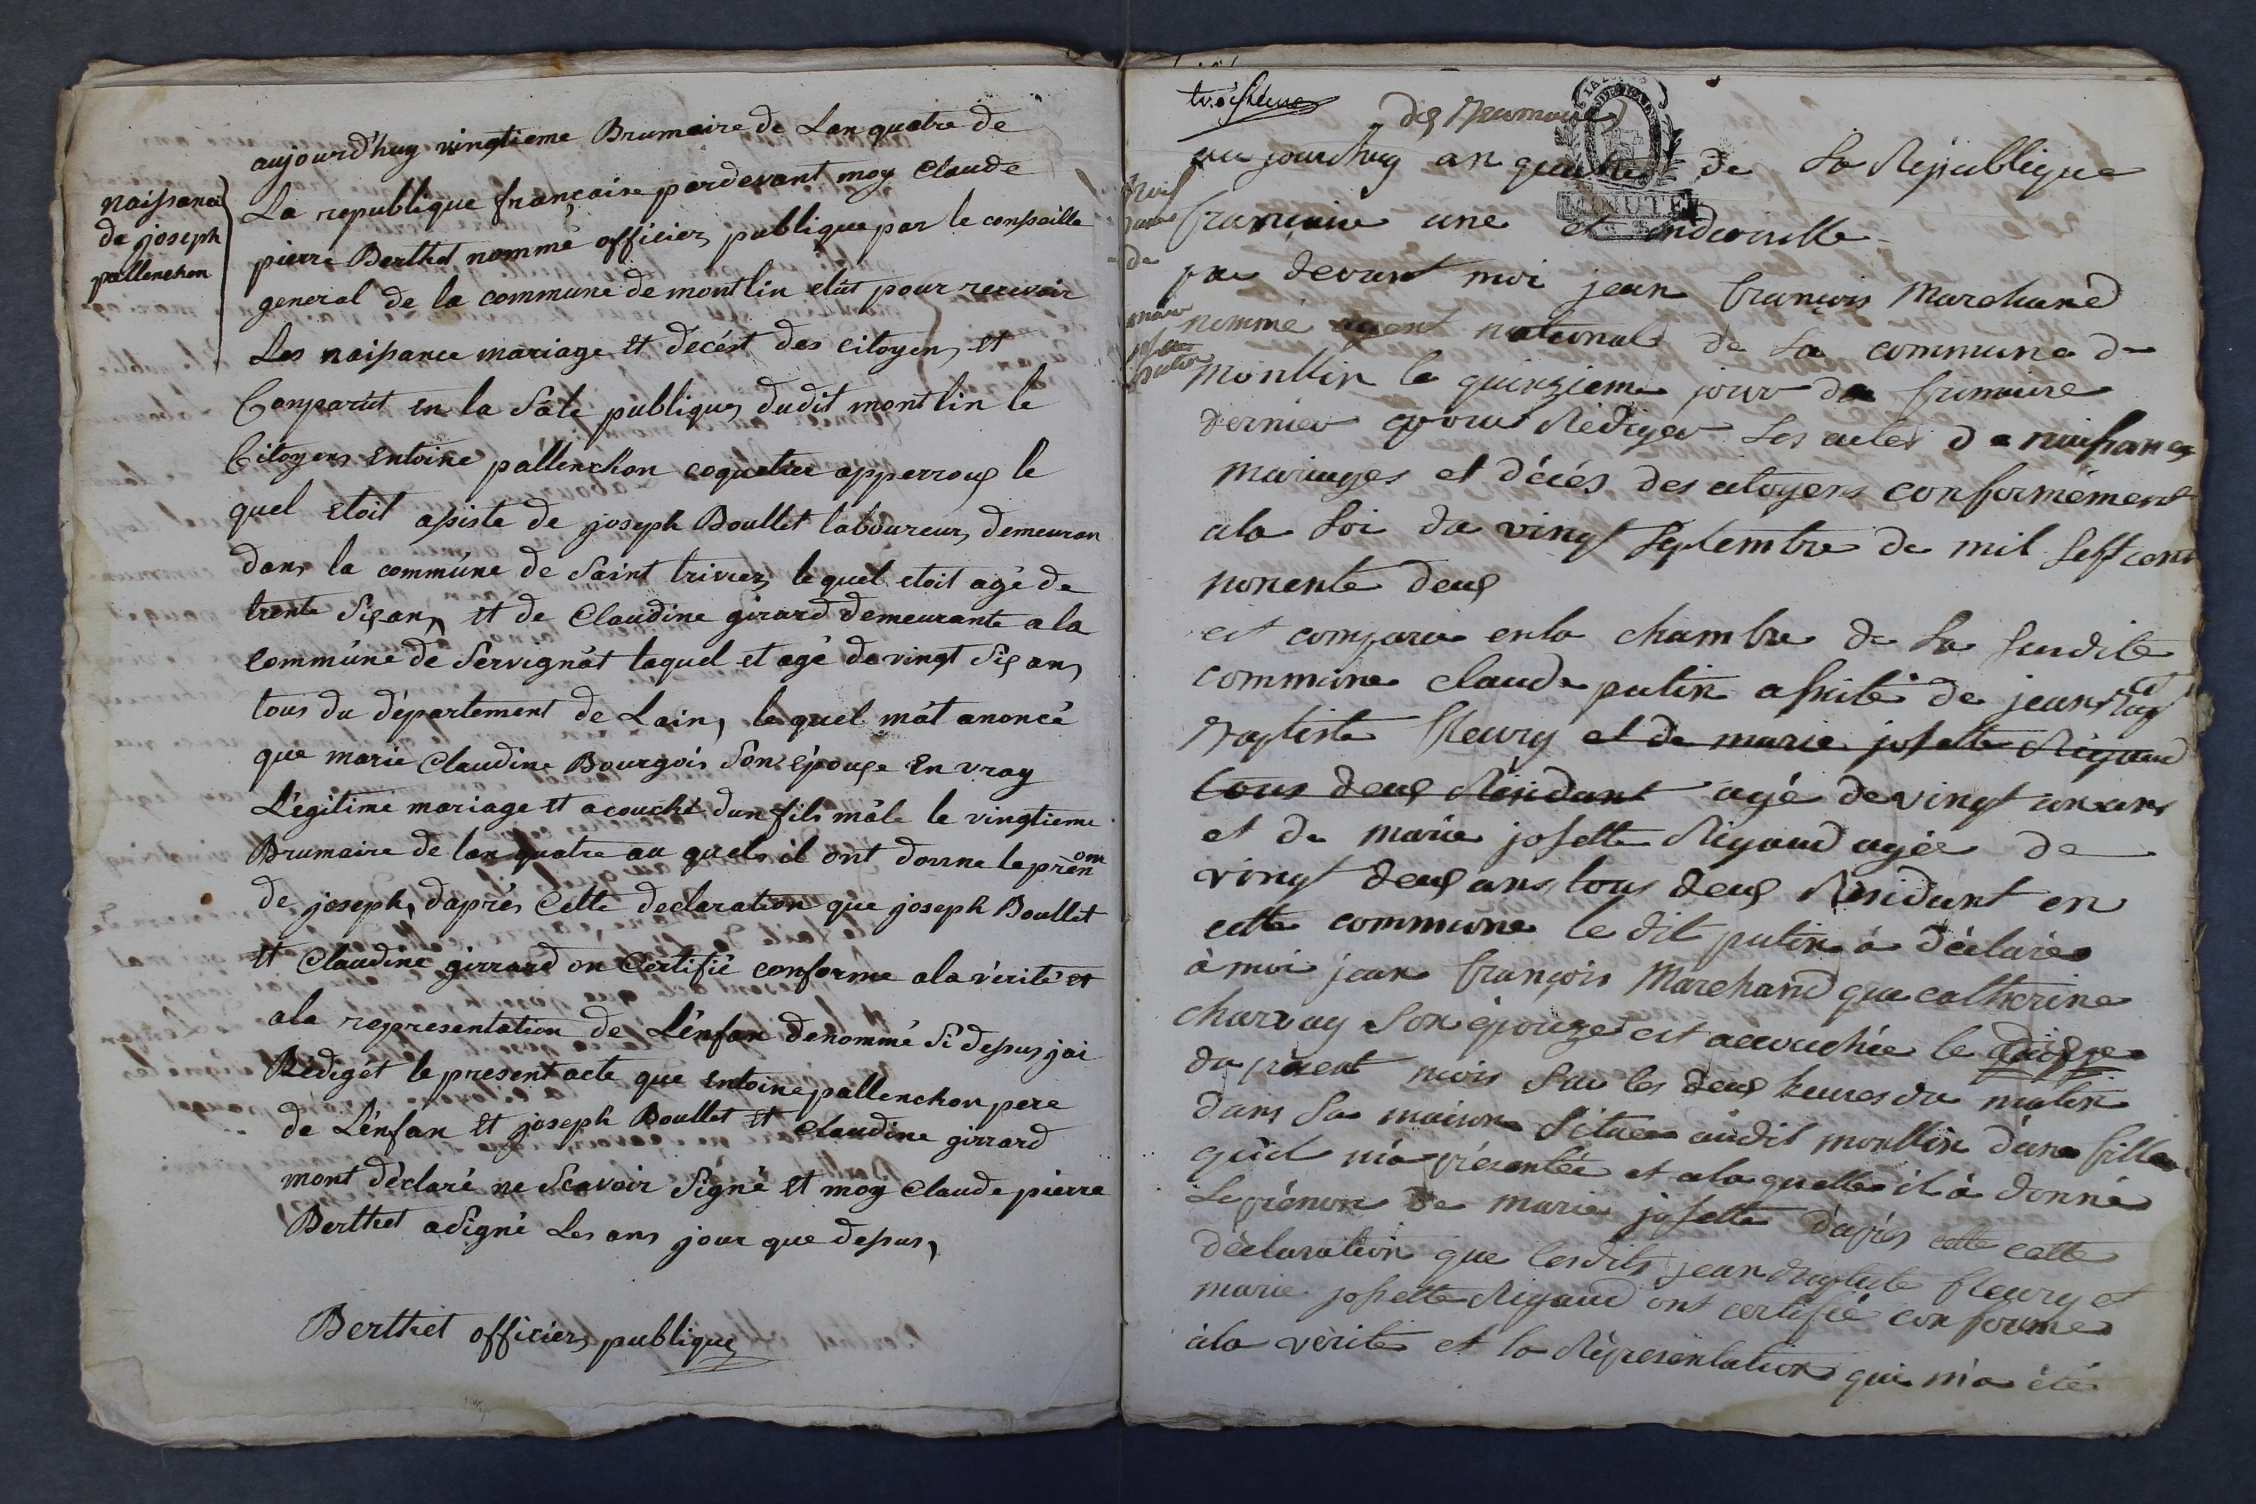 naissance
de joseph
pallenchon
aujourd'huy vingtieme Brumaire de Lan quatre de
La republique française pardevant moy Claude
pierre Berthet nommé officier publique par le conseille
general de la commune de montlin elût pour recevoir
Les naissance mariage et décést des citoyens, et
Comparut en la Sâle publique dudit montlin le
Citoyens Entoine pallenchon coquetier apperroux le
quel etoit assiste de joseph Boullet laboureur, demeuran
dans la commúne de Saint trivier, lequel etoit agé de
trente Six ans, et de Claudine girard demeurante a la
Commúne de Servignat laquel et agé de vingt Six ans
tous du département de Lain, lequel mât anoncé
que marie Claudine Bourgois Son épouse En vray
Légitime mariage et acouché dun fils mâle le vingtieme
Brumaire de lan quatre au quels il ont donne le prènom
de joseph, d'après Cette declaration que joseph Boullet
et Claudine girrard on Certifié conforme ala vérité et
ala representation de L'énfan denommé Si depus jai
Rédigét le present acte que Entoine pallenchon pere
de L'énfan et joseph Boullet et Claudine girrard
mont déclaré ne Scavoir Signé et moy Claude pierre
Berthet a Signé Les ans jour que depus,
Berthet officier publique
troisieme
dix Brumaire
MINUTE
au jourdhuy an quatre de La République
française une et indivisille
par devant moi jean françois Marchand
nommé agent national de la commune de
montlin le quinzieme jour de frimaire
dernier pour Rédiger Les actes de naissances
mariages et décés des citoyens conformément
ala Loi du vingt Septembre de mil Sept cent
nonente deux
est comparu en la chambre de La Susdite
commune claude putin assisté de jean
Baptiste fleury et de marie josette Rigaud
tous deux Résidant agé de vingt un ans
et de marie josette Rigaud agée de
vingt deux ans tous deux Résidant en
cette commune le dit putin à déclaré
à moi jean françois Marchand que catherine
charvay Son épouze est accouchée le
du présent mois Sur les deux heures du matin
dans Sa maison Située audit montlin dune fille
quil m'a présentée et ala quelle il à donné
Le prénom de marie josette d'après cette cette
déclaration que lesdits jean Baptiste fleury et
marie josette Rigaud ont certifié conforme
àla vérité et la Réprésentation qui m'a été